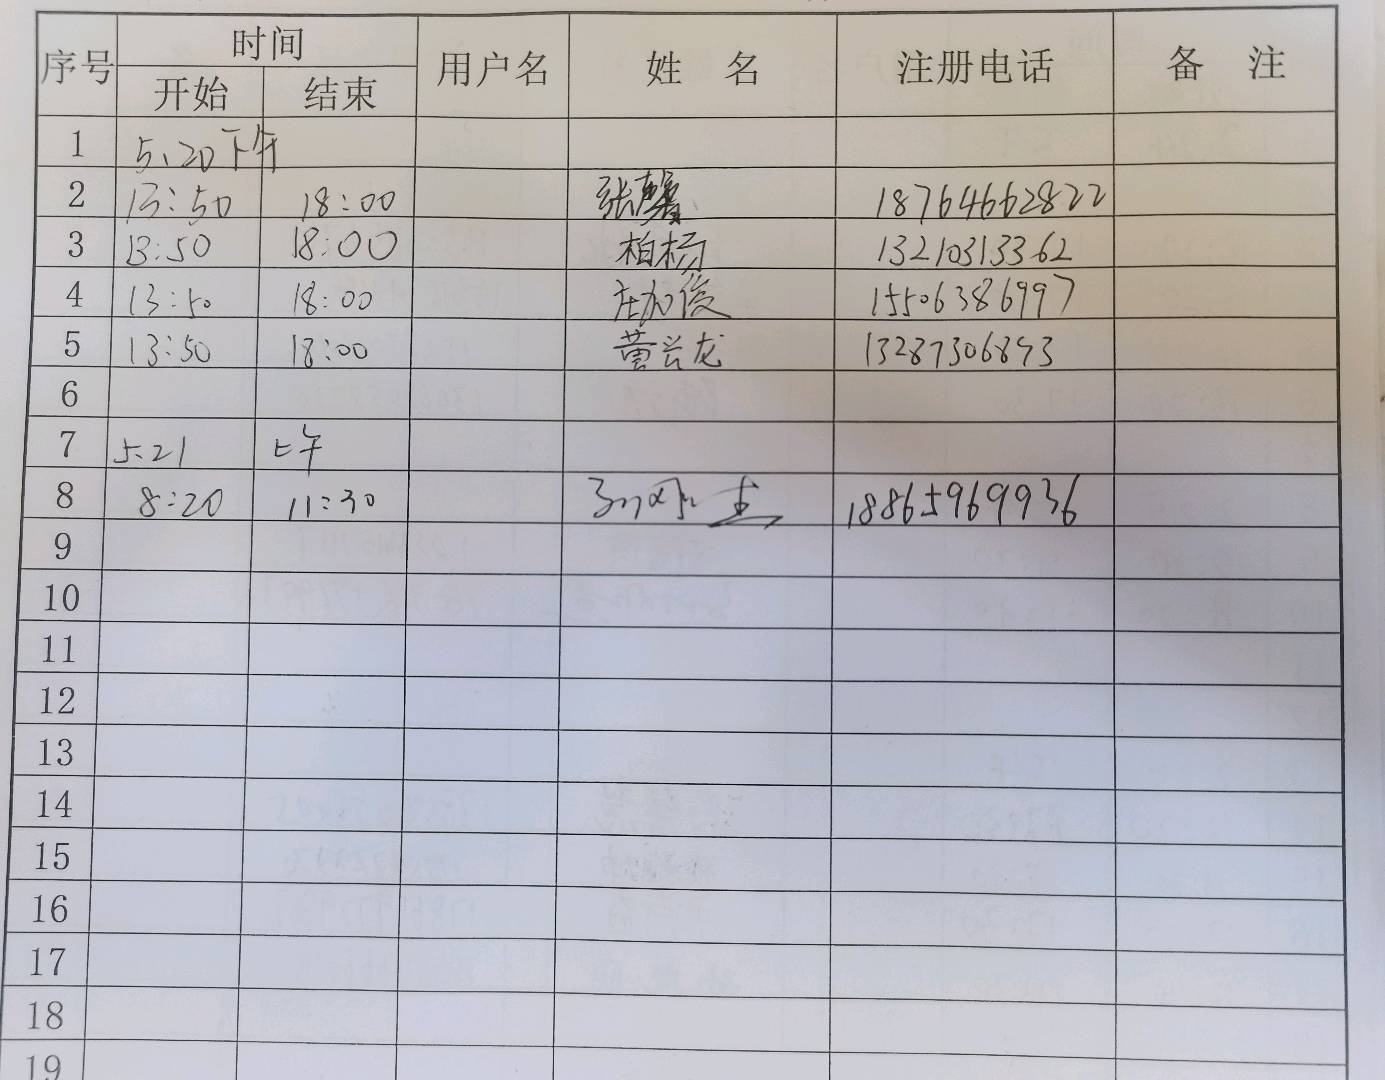 序号 时间 用户名 姓 名 注册电话 备 注
开始 结束
1 5、20下午
2 13:50 18:00 张馨 18764662822
3 13:50 18:00 柏杨 13210313362
4 13:50 18:00 庄加俊 15506386997
5 13:50 18:00 董兴龙 13287306893
6
7 5.21 上午
8 8:20 11:30 18865969936
9
10
11
12
13
14
15
16
17
18
19